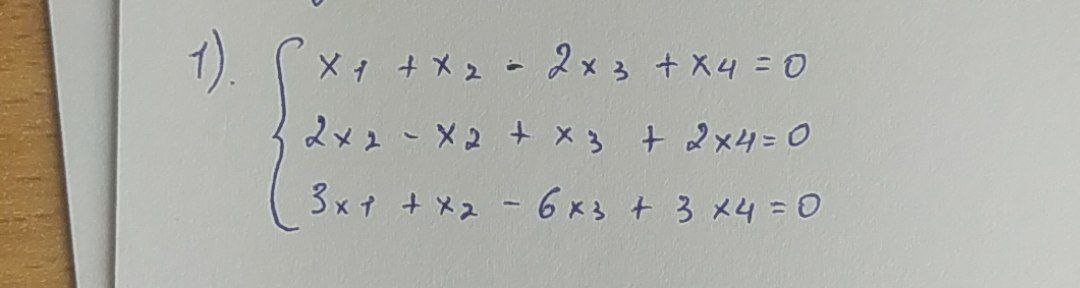 1). x1 + x2 - 2x3 + x4 = 0
2x2 - x2 + x3 + 2x4 = 0
3x1 + x2 - 6x3 + 3x4 = 0